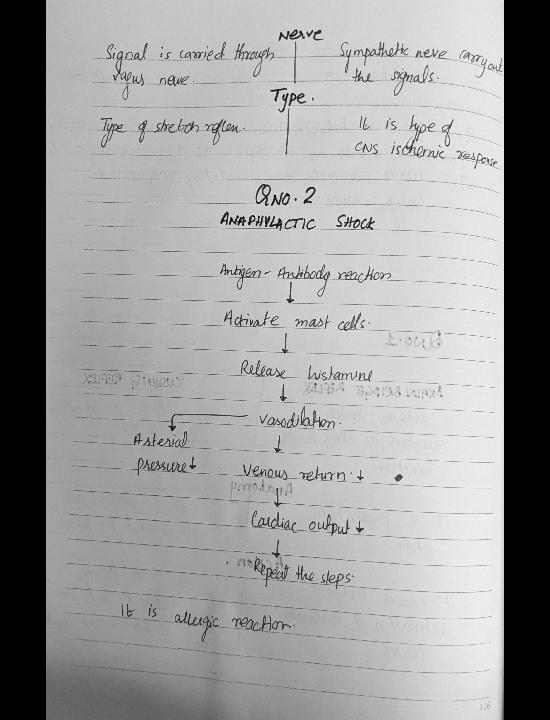 Nerve
Signal is carried through
vagus neve.
Sympathetic neve carryout
the signals.
Type.
Type of stretch reflex.
It is type of
CNS ischemic response
QNO. 2
ANAPHYLACTIC SHOCK
Antigen - Antibody reaction
↓
Activate mast cells.
↓
Release histamine
↓
Vasodilation.
↓
Asterial
pressure↓
Venous return ↓
↓
Cardiac output ↓
↓
Repeat the steps.
It is allergic reaction.